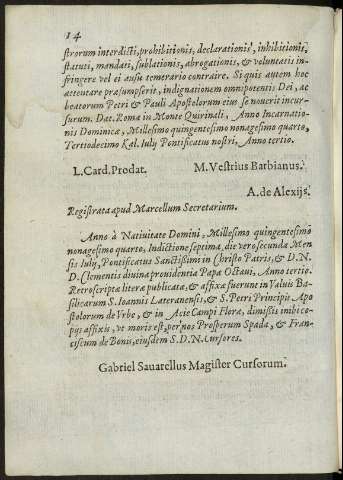 14
strorum interdicti, prohibitionis, declarationis, inhibitionis,
statuti, mandati, sublationis, abrogationis, & voluntatis in-
fringere vel ei ausu temerario contraire. Si quis autem hoc
attentare præsumpserit, indignationem omnipotentis Dei, ac
beatorum Petri & Pauli Apostolorum eius se nouerit incur-
surum. Dat. Roma in Monte Quirinali, Anno Incarnatio-
nis Dominicæ, Millesimo quingentesimo nonagesimo quarto,
Tertiodecimo Kal. Iulij Pontificatus nostri, Anno tertio.
L. Card. Prodat. M. Vestrius Barbianus.
A. de Alexijs.
Registrata apud Marcellum Secretarium.
Anno à Natiuitate Domini, Millesimo quingentesimo
nonagesimo quarto, Indictione septima, die vero secunda Men-
sis Iulij, Pontificatus Sanctissimi in Christo Patris, & D. N.
D. Clementis diuina prouidentia Papa Octaui, Anno tertio.
Retroscripta litera publicata, & affixa fuerunt in Valuis Ba-
silicarum S. Ioannis Lateranensis, & S. Petri Principis Apo
stolorum de Vrbe, & in Acie Campi Flora, dimissis inibi co-
pijs affixis, vt moris est, per nos Prosperum Spada, & Fran-
ciscum de Bonis, eiusdem S. D. N. Cursores.
Gabriel Sauarellus Magister Cursorum.